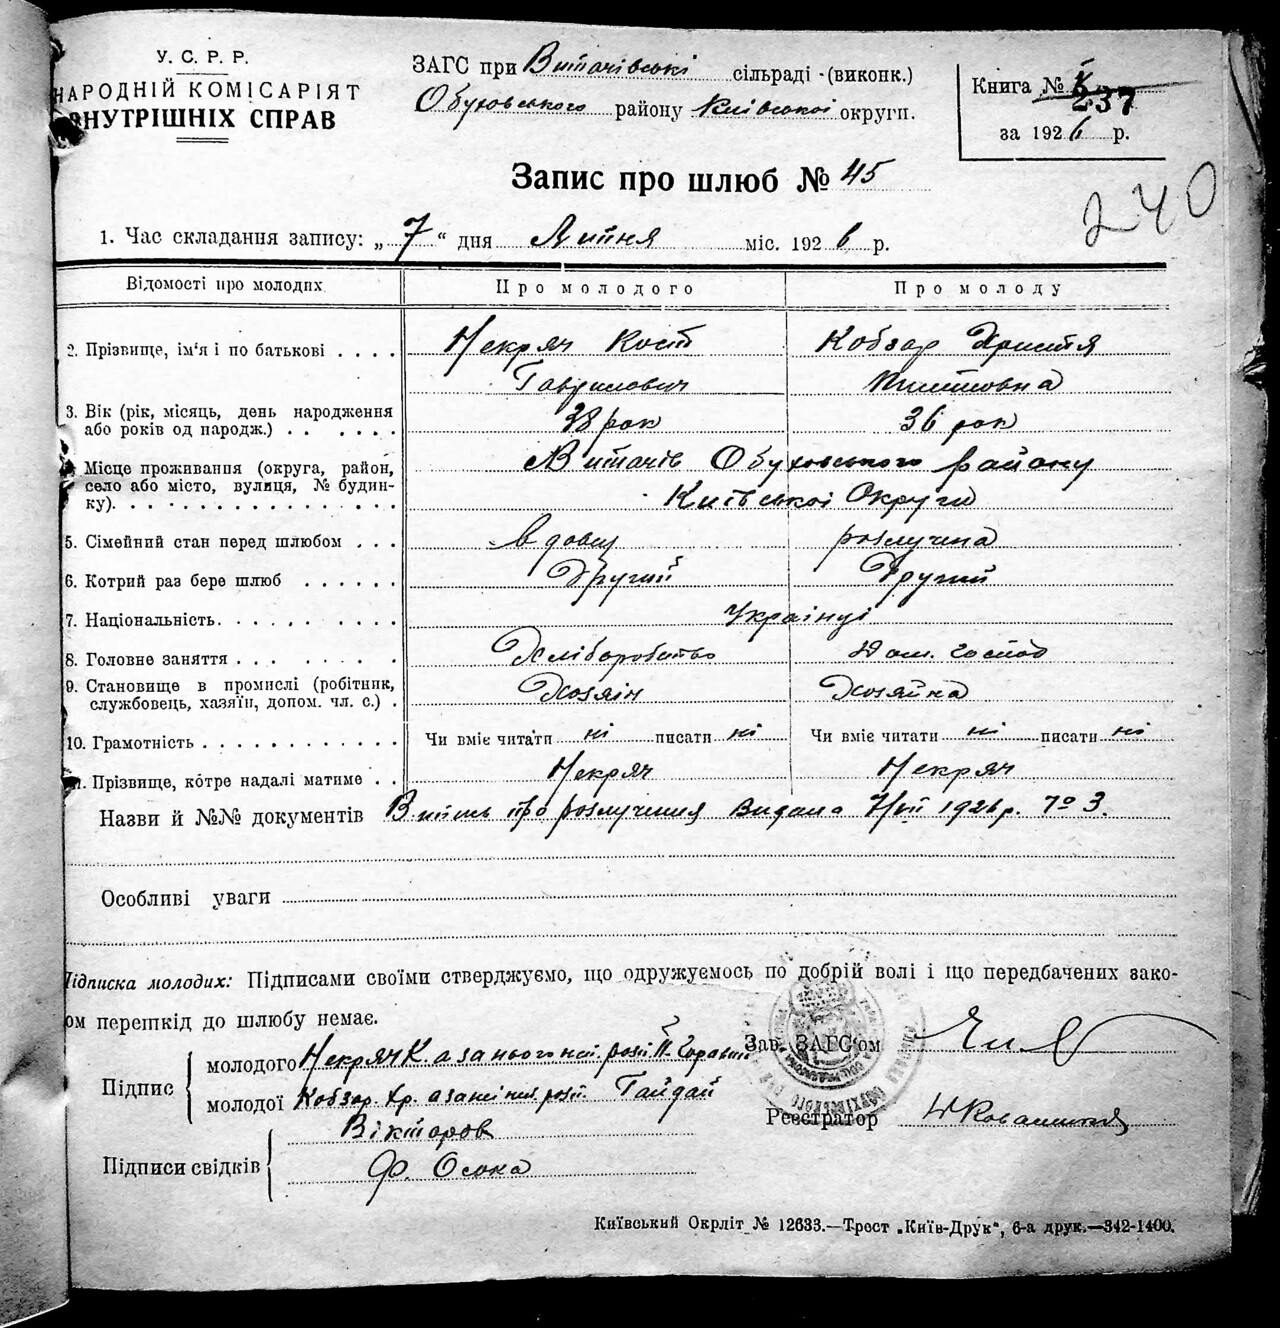 У. С. Р. Р.
НАРОДНІЙ КОМІСАРІЯТ
ВНУТРІШНІХ СПРАВ
ЗАГС при Витачівські сільраді (виконк.)
Обуховського району Київської округи.
Книга № 237
за 1926 р.
240
Запис про шлюб № 45
1. Час складання запису: „7“ дня Липня міс. 1926 р.
Відомості про молодих Про молодого Про молоду
2. Прізвище, ім'я і по батькові . . . . Некряч Кость Кобзар Христя
Гаврилович
3. Вік (рік, місяць, день народження 38 рок 36 рок
або років од народж.) . . . . . .
Місце проживання (округа, район, Витачів Обуховського району
село або місто, вулиця, № будин-
ку). . . . . . . . . . . . . . . Київської Округи
5. Сімейний стан перед шлюбом . . . вдовец розлучена
6. Котрий раз бере шлюб . . . . . . Другий Другий
7. Національність. . . . . . . . . Українці
8. Головне заняття . . . . . . . Хліборобство Дом. господ
9. Становище в промислі (робітник, Хозяїн Хозяйка
службовець, хазяїн, допом. чл. с.) .
10. Грамотність . . . . . . . . . . . . Чи вміє читати ні писати ні Чи вміє читати ні писати ні
11. Прізвище, котре надалі матиме . . Некряч Некряч
Назви й №№ документів про розлучення видана 7/VII 1926 р. № 3.
Особливі уваги
Підписка молодих: Підписами своїми стверджуємо, що одружуємось по добрій волі і що передбачених зако-
ом перешкід до шлюбу немає.
Підпис
молодого Некряч К. а за нього неп. розп.
молодої Кобзар Хр. а за неї неп. розп. Гайдай
Зав. ЗАГС'ом
Реєстратор
Підписи свідків
Вікторов
Ф. Осока
Київський Окрліт № 12633.—Трест „Київ-Друк“, 6-а друк.—342-1400.